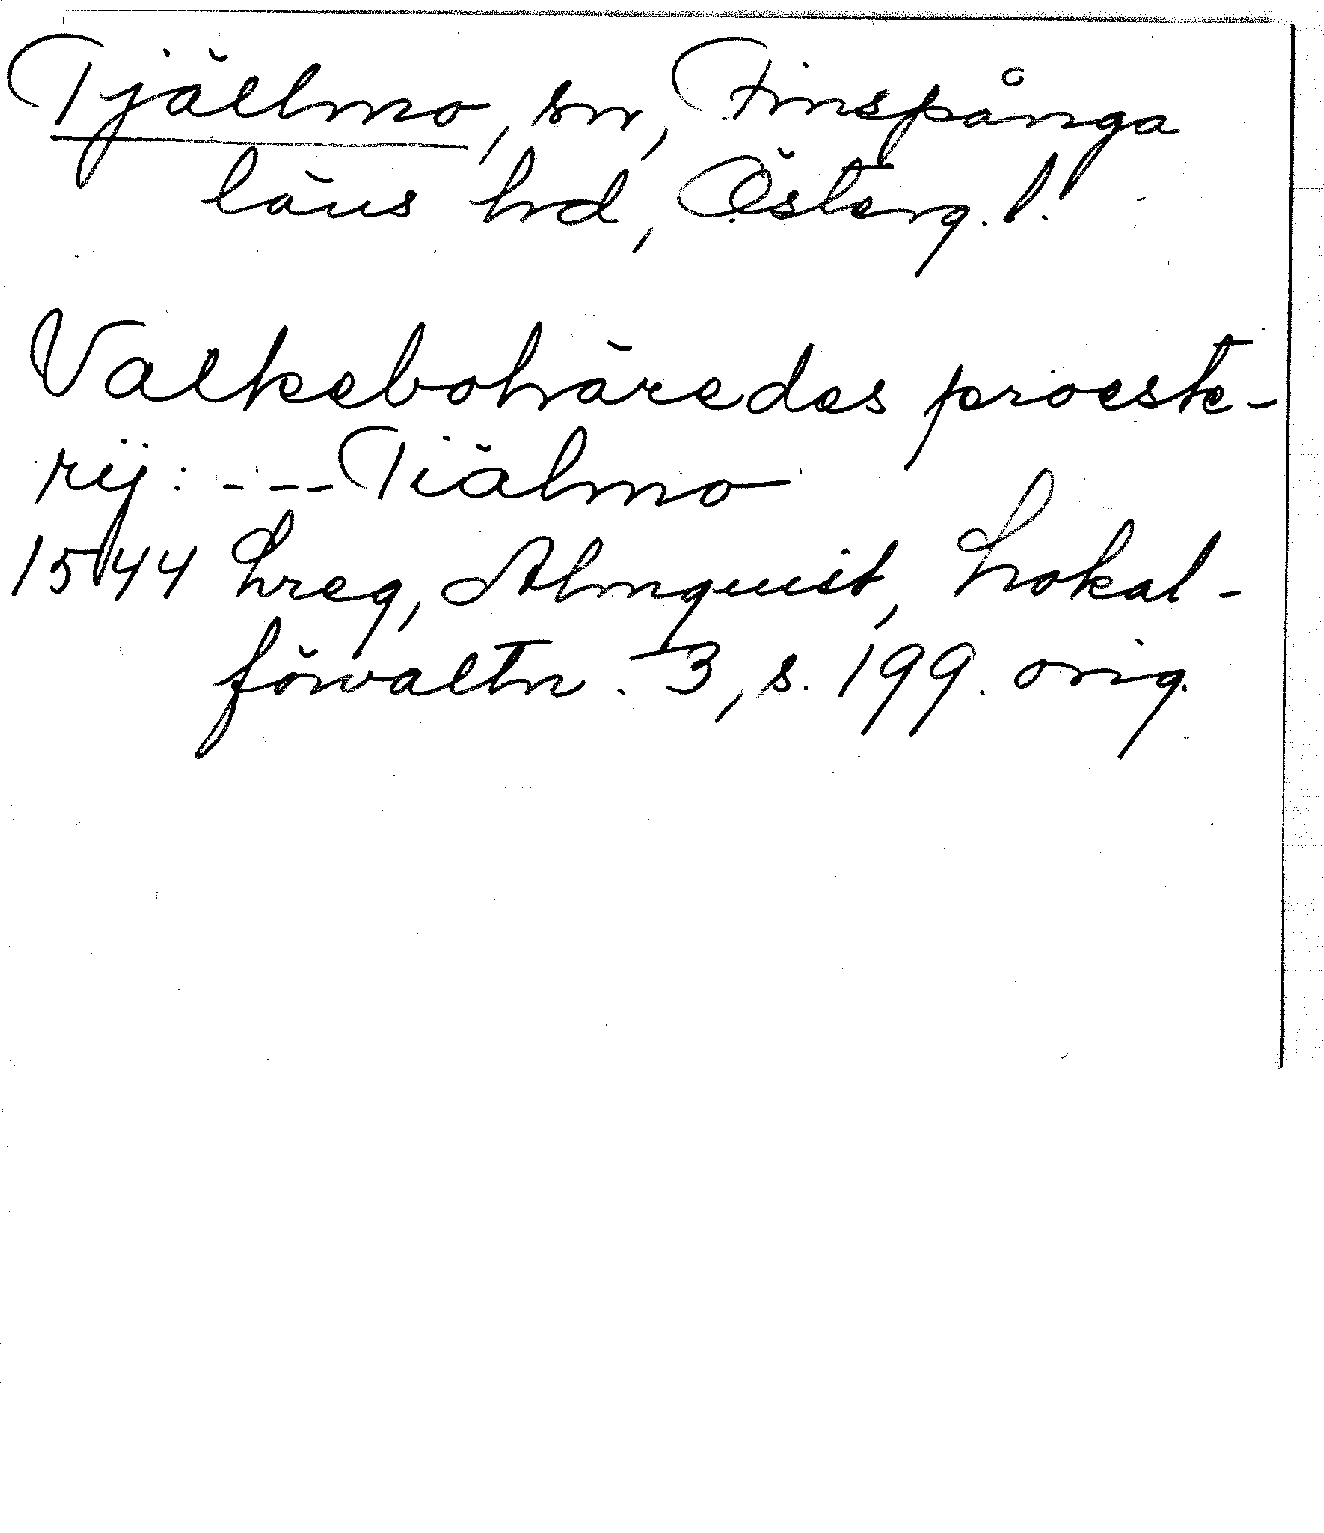 Tjällmo, sn, Finspånga
läns hd, Österg. l.
Valkebohäredes proeste-
rij: --- Tiälmo
1544 Lreg, Almquist, Lokal-
förvaltn. 3, s. 199. orig.